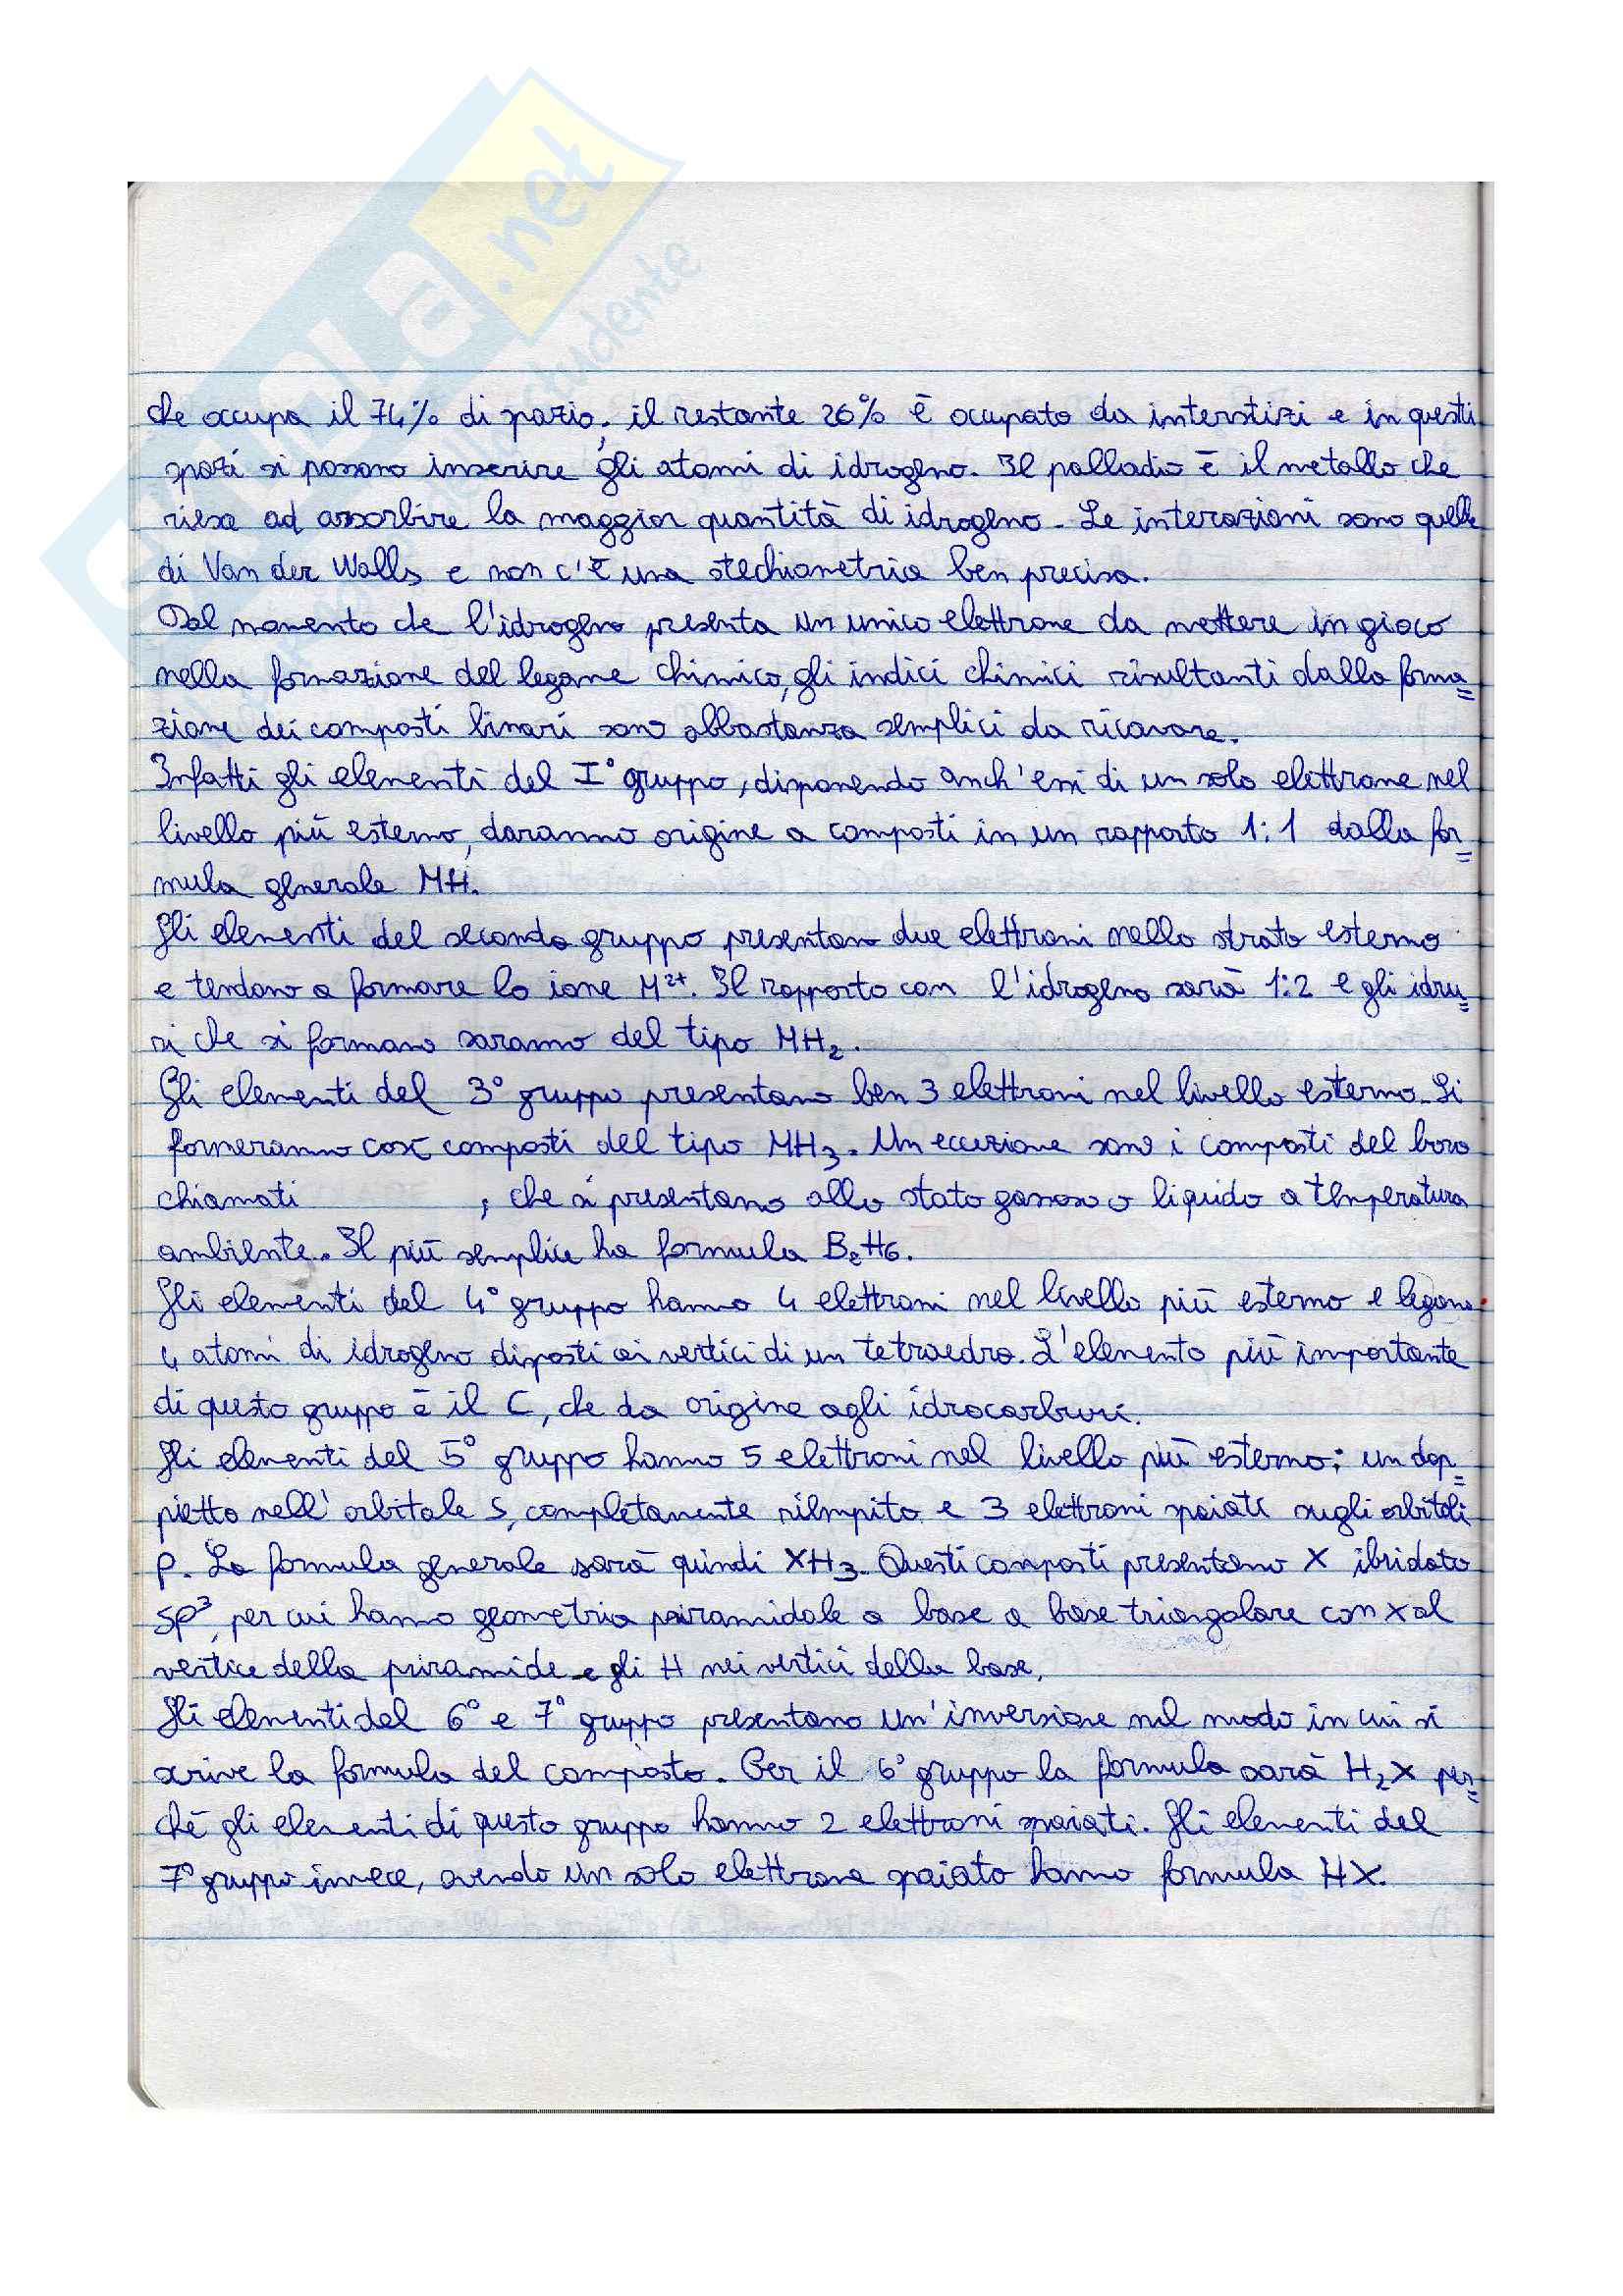 .net
studente
che occupa il 74% di spazio; il restante 26% è occupato da interstizi e in questi
spazi si possono inserire gli atomi di idrogeno. Il palladio è il metallo che
riesce ad assorbire la maggior quantità di idrogeno. Le interazioni sono quelle
di Van der Walls e non c'è una stechiometria ben precisa.
Dal momento che l'idrogeno presenta un unico elettrone da mettere in gioco
nella formazione del legame chimico, gli indici chimici risultanti dalla forma=
zione dei composti binari sono abbastanza semplici da ricavare.
Infatti gli elementi del I° gruppo, disponendo anch'essi di un solo elettrone nel
livello più esterno, daranno origine a composti in un rapporto 1:1 dalla for=
mula generale MH.
Gli elementi del secondo gruppo presentano due elettroni nello strato esterno
e tendono a formare lo ione M²⁺. Il rapporto con l'idrogeno sarà 1:2 e gli idru=
ri che si formano saranno del tipo MH₂.
Gli elementi del 3° gruppo presentano ben 3 elettroni nel livello esterno. Si
formeranno così composti del tipo MH₃. Un eccezione sono i composti del boro
chiamati , che si presentano allo stato gassoso o liquido a temperatura
ambiente. Il più semplice ha formula B₂H₆.
Gli elementi del 4° gruppo hanno 4 elettroni nel livello più esterno e legano
4 atomi di idrogeno disposti ai vertici di un tetraedro. L'elemento più importante
di questo gruppo è il C, che da origine agli idrocarburi.
Gli elementi del 5° gruppo hanno 5 elettroni nel livello più esterno: un dop=
pietto nell'orbitale s, completamente riempito e 3 elettroni spaiati sugli orbitali
p. La formula generale sarà quindi XH₃. Questi composti presentano X ibridato
sp³, per cui hanno geometria piramidale a base a base triangolare con X al
vertice della piramide e gli H nei vertici della base.
Gli elementi del 6° e 7° gruppo presentano un'inversione nel modo in cui si
scrive la formula del composto. Per il 6° gruppo la formula sarà H₂X per=
ché gli elementi di questo gruppo hanno 2 elettroni spaiati. Gli elementi del
7° gruppo invece, avendo un solo elettrone spaiato hanno formula HX.